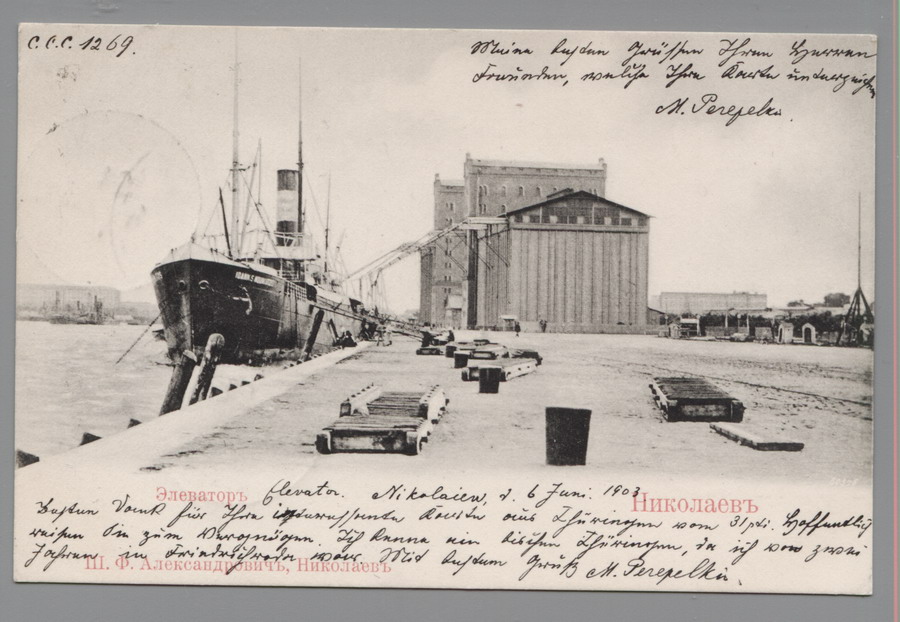 C.C.C. 1269.
Meine besten Grüssen Ihren Herren
Freunden, welche Ihre Karte unterzeichn
M. Perepelkin.
IOANNIS
Элеваторъ
Elevator. Nikolaiew, d. 6 Juni. 1903
Николаевъ
Besten Dank für Ihre interessante Karte aus Thüringen vom 31 pti. Hoffentlich
reisen Sie zum Vergnügen. Ich kenne ein bischen Thüringen, da ich vor zwei
Jahren in Friedrichroda war. Mit bestem Gruß M. Perepelkin.
Ш. Ф. Александровичъ, Николаевъ